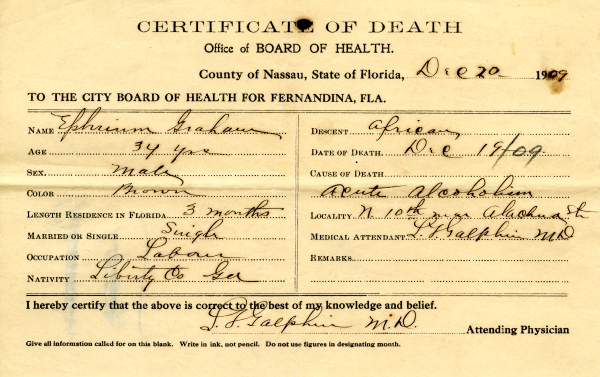 CERTIFICATE OF DEATH
Office of BOARD OF HEALTH.
County of Nassau, State of Florida, Dec 20 1909
TO THE CITY BOARD OF HEALTH FOR FERNANDINA, FLA.
NAME Ephrium Graham
AGE 34 yrs
SEX. Male
COLOR Brown
LENGTH RESIDENCE IN FLORIDA 3 months
MARRIED OR SINGLE Single
OCCUPATION Labour
NATIVITY Liberty Co Ga
DESCENT African
DATE OF DEATH. Dec 19/09
CAUSE OF DEATH
Acute Alcoholism
LOCALITY N 10th near Alachua St
MEDICAL ATTENDANT L. Galphin MD
REMARKS
I hereby certify that the above is correct to the best of my knowledge and belief.
Galphin M.D. Attending Physician
Give all information called for on this blank. Write in ink, not pencil. Do not use figures in designating month.